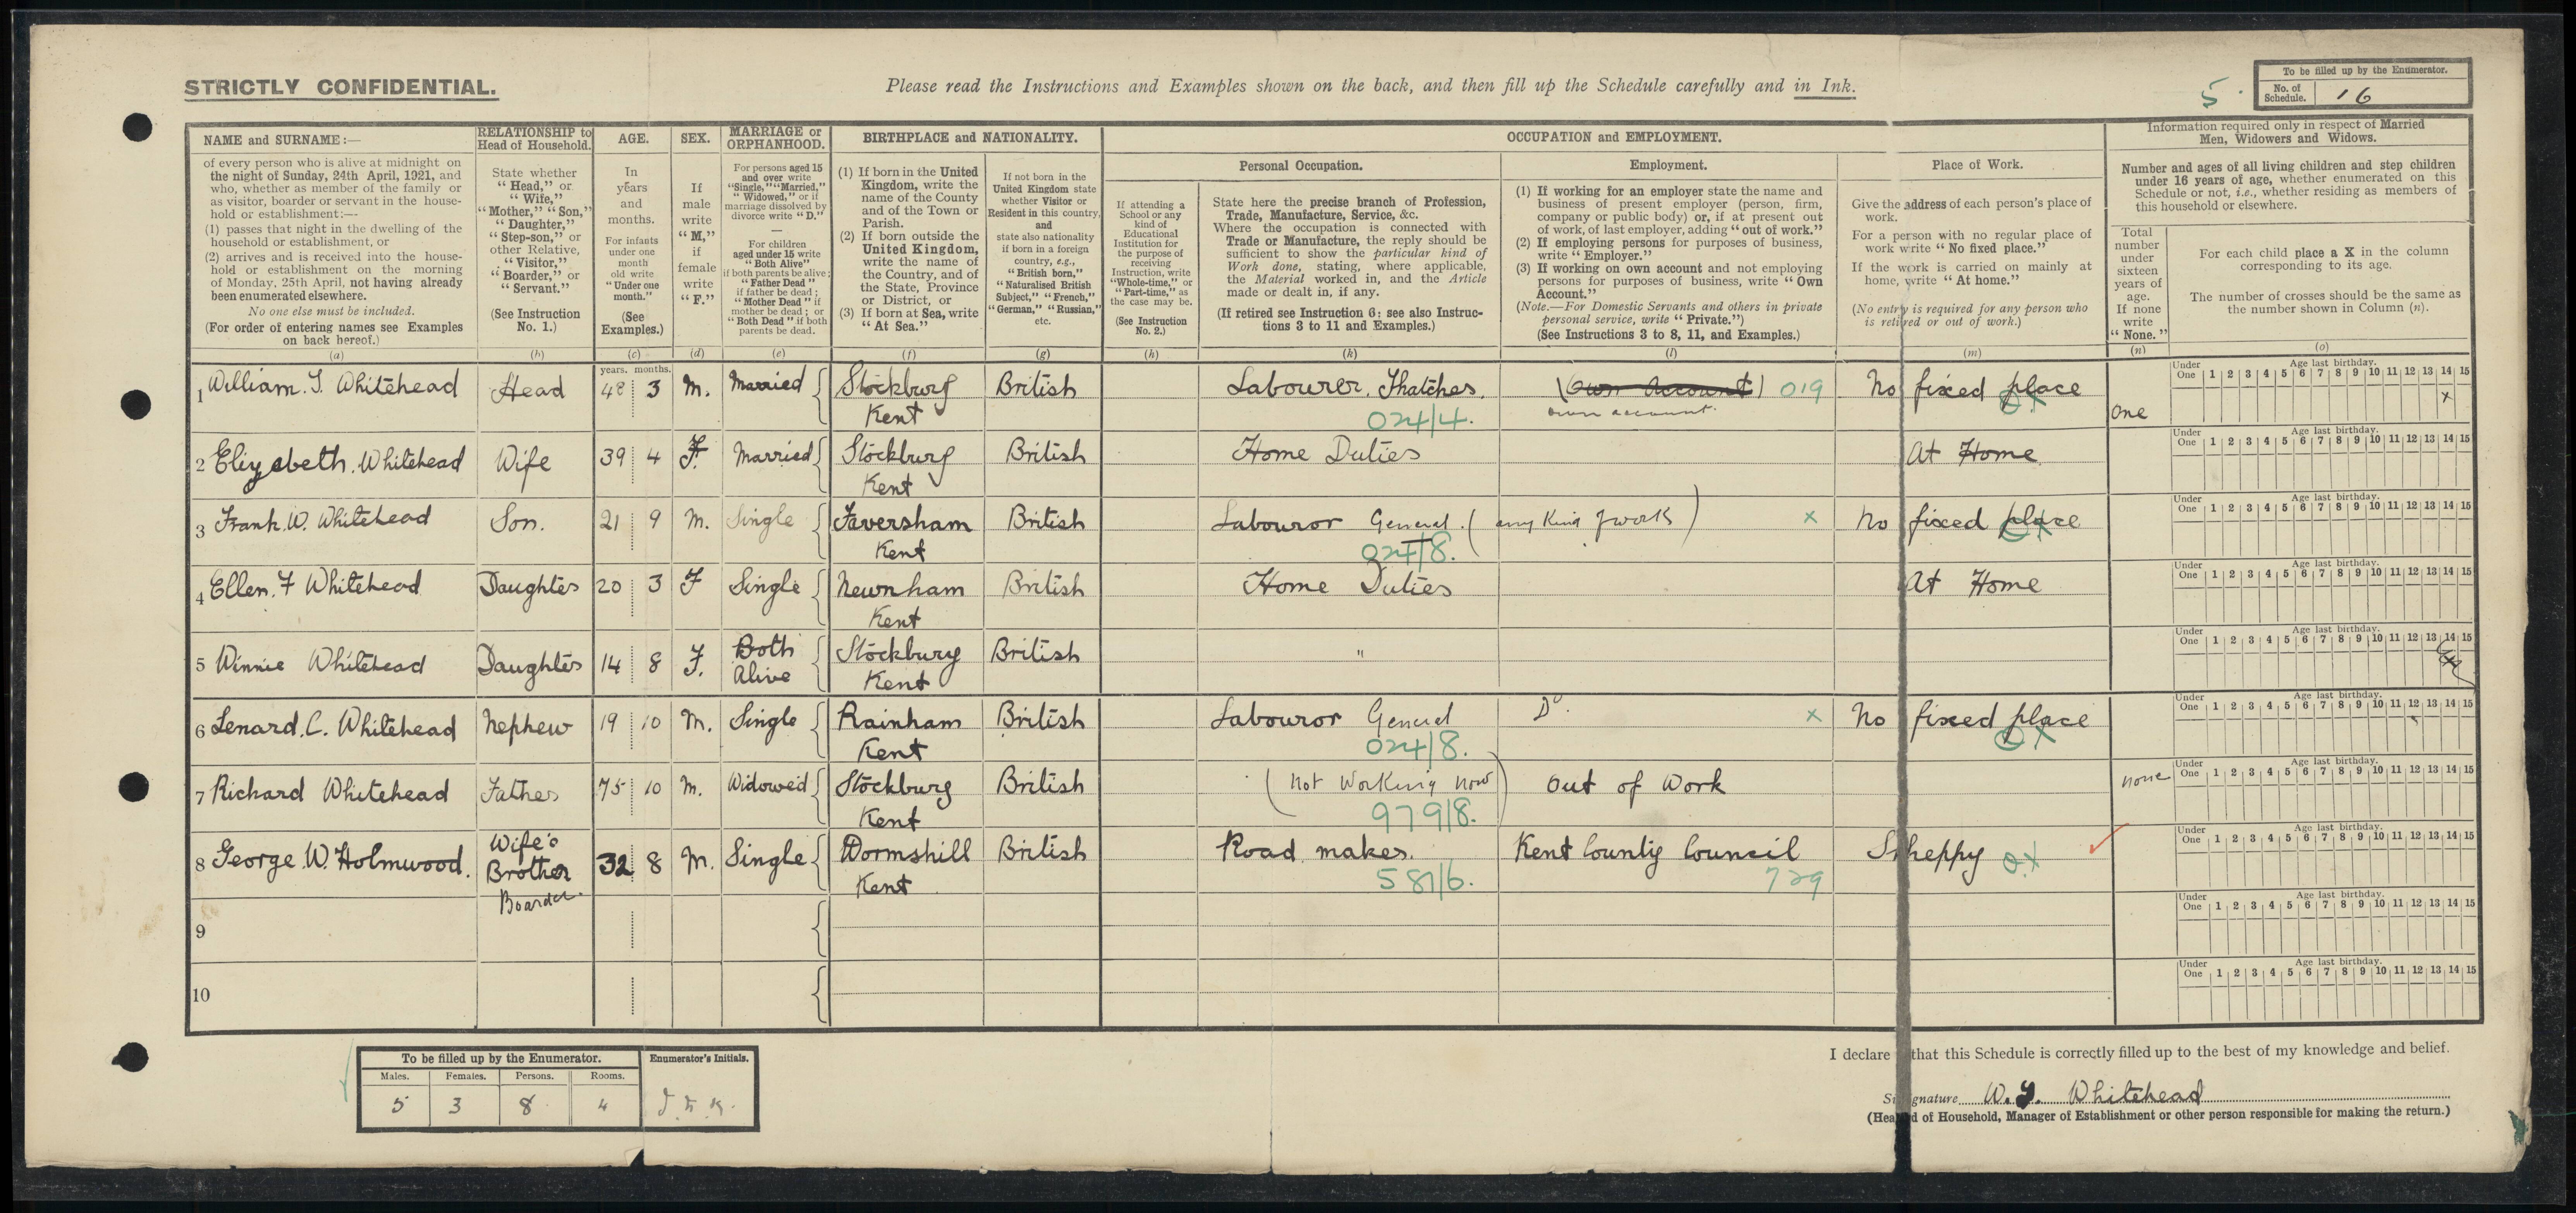 STRICTLY CONFIDENTIAL.
Please read the Instructions and Examples shown on the back, and then fill up the Schedule carefully and in Ink.
5.
To be filled up by the Enumerator.
No. of Schedule. 16
NAME and SURNAME:—
of every person who is alive at midnight on
the night of Sunday, 24th April, 1921, and
who, whether as member of the family or
as visitor, boarder or servant in the house-
hold or establishment:—
(1) passes that night in the dwelling of the
household or establishment, or
(2) arrives and is received into the house-
hold or establishment on the morning
of Monday, 25th April, not having already
been enumerated elsewhere.
No one else must be included.
(For order of entering names see Examples
on back hereof.)
(a)
RELATIONSHIP to
Head of Household.
State whether
"Head," or
"Wife,"
"Mother," "Son,"
"Daughter,"
"Step-son," or
other Relative,
"Visitor,"
"Boarder," or
"Servant."
(See Instruction
No. 1.)
(b)
AGE.
In
years
and
months.
For infants
under one
month
old write
"Under one
month."
(See
Examples.)
(c)
SEX.
If
male
write
"M,"
if
female
write
"F."
(d)
MARRIAGE or
ORPHANHOOD.
For persons aged 15
and over write
"Single," "Married,"
"Widowed," or if
marriage dissolved by
divorce write "D."
—
For children
aged under 15 write
"Both Alive"
if both parents be alive;
"Father Dead"
if father be dead;
"Mother Dead" if
mother be dead; or
"Both Dead" if both
parents be dead.
(e)
BIRTHPLACE and NATIONALITY.
(1) If born in the United
Kingdom, write the
name of the County
and of the Town or
Parish.
(2) If born outside the
United Kingdom,
write the name of
the Country, and of
the State, Province
or District, or
(3) If born at Sea, write
"At Sea."
(f)
If not born in the
United Kingdom state
whether Visitor or
Resident in this country,
and
state also nationality
if born in a foreign
country, e.g.,
"British born,"
"Naturalised British
Subject," "French,"
"German," "Russian,"
etc.
(g)
OCCUPATION and EMPLOYMENT.
If attending a
School or any
kind of
Educational
Institution for
the purpose of
receiving
Instruction, write
"Whole-time," or
"Part-time," as
the case may be.
(See Instruction
No. 2.)
(h)
Personal Occupation.
State here the precise branch of Profession,
Trade, Manufacture, Service, &c.
Where the occupation is connected with
Trade or Manufacture, the reply should be
sufficient to show the particular kind of
Work done, stating, where applicable,
the Material worked in, and the Article
made or dealt in, if any.
(If retired see Instruction 6: see also Instruc-
tions 3 to 11 and Examples.)
(k)
Employment.
(1) If working for an employer state the name and
business of present employer (person, firm,
company or public body) or, if at present out
of work, of last employer, adding "out of work."
(2) If employing persons for purposes of business,
write "Employer."
(3) If working on own account and not employing
persons for purposes of business, write "Own
Account."
(Note.—For Domestic Servants and others in private
personal service, write "Private.")
(See Instructions 3 to 8, 11, and Examples.)
(l)
Place of Work.
Give the address of each person's place of
work.
For a person with no regular place of
work write "No fixed place."
If the work is carried on mainly at
home, write "At home."
(No entry is required for any person who
is retired or out of work.)
(m)
Information required only in respect of Married
Men, Widowers and Widows.
Number and ages of all living children and step children
under 16 years of age, whether enumerated on this
Schedule or not, i.e., whether residing as members of
this household or elsewhere.
Total
number
under
sixteen
years of
age.
If none
write
"None."
(n)
For each child place a X in the column
corresponding to its age.
The number of crosses should be the same as
the number shown in Column (n).
(o)
years. months.
Under One 1 2 3 4 5 6 7 8 9 10 11 12 13 14 15
Age last birthday.
1 William. T. Whitehead Head 48 3 M. Married Stockbury Kent British Labourer. Thatcher. 024/4. (Own Account) own account. 019 No fixed place one x
2 Elizabeth. Whitehead Wife 39 4 F. Married Stockbury Kent British Home Duties At Home
Under One 1 2 3 4 5 6 7 8 9 10 11 12 13 14 15
Age last birthday.
3 Frank. W. Whitehead Son. 21 9 M. Single Faversham Kent British Labouror General. (any King of work) 024/8. x No fixed place
Under One 1 2 3 4 5 6 7 8 9 10 11 12 13 14 15
Age last birthday.
4 Ellen. F Whitehead Daughter 20 3 F Single Newnham Kent British Home Duties At Home
Under One 1 2 3 4 5 6 7 8 9 10 11 12 13 14 15
Age last birthday.
5 Winnie Whitehead Daughter 14 8 F. Both Alive Stockbury Kent British "
Under One 1 2 3 4 5 6 7 8 9 10 11 12 13 14 15
Age last birthday.
6 Lenard. C. Whitehead Nephew 19 10 M. Single Rainham Kent British Labouror General 024/8. Do. x No fixed place
Under One 1 2 3 4 5 6 7 8 9 10 11 12 13 14 15
Age last birthday.
7 Richard Whitehead Father 75 10 M. Widowed Stockbury Kent British (not Working now) 979/8. Out of Work none
Under One 1 2 3 4 5 6 7 8 9 10 11 12 13 14 15
Age last birthday.
8 George. W. Holmwood. Wife's Brother Boarder. 32 8 M. Single Wormshill Kent British Road maker. 581/6. Kent County Council 729 Sheppy
Under One 1 2 3 4 5 6 7 8 9 10 11 12 13 14 15
Age last birthday.
9
Under One 1 2 3 4 5 6 7 8 9 10 11 12 13 14 15
Age last birthday.
10
Under One 1 2 3 4 5 6 7 8 9 10 11 12 13 14 15
Age last birthday.
Under One 1 2 3 4 5 6 7 8 9 10 11 12 13 14 15
Age last birthday.
To be filled up by the Enumerator.
Males. Females. Persons. Rooms.
5 3 8 4
Enumerator's Initials.
I declare that this Schedule is correctly filled up to the best of my knowledge and belief.
Signature W. T. Whitehead
(Head of Household, Manager of Establishment or other person responsible for making the return.)